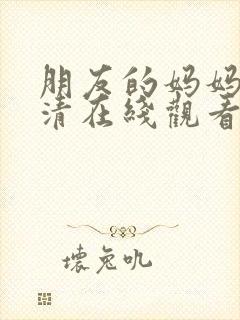 朋友的妈妈
清在綫觀看
壊兔叽